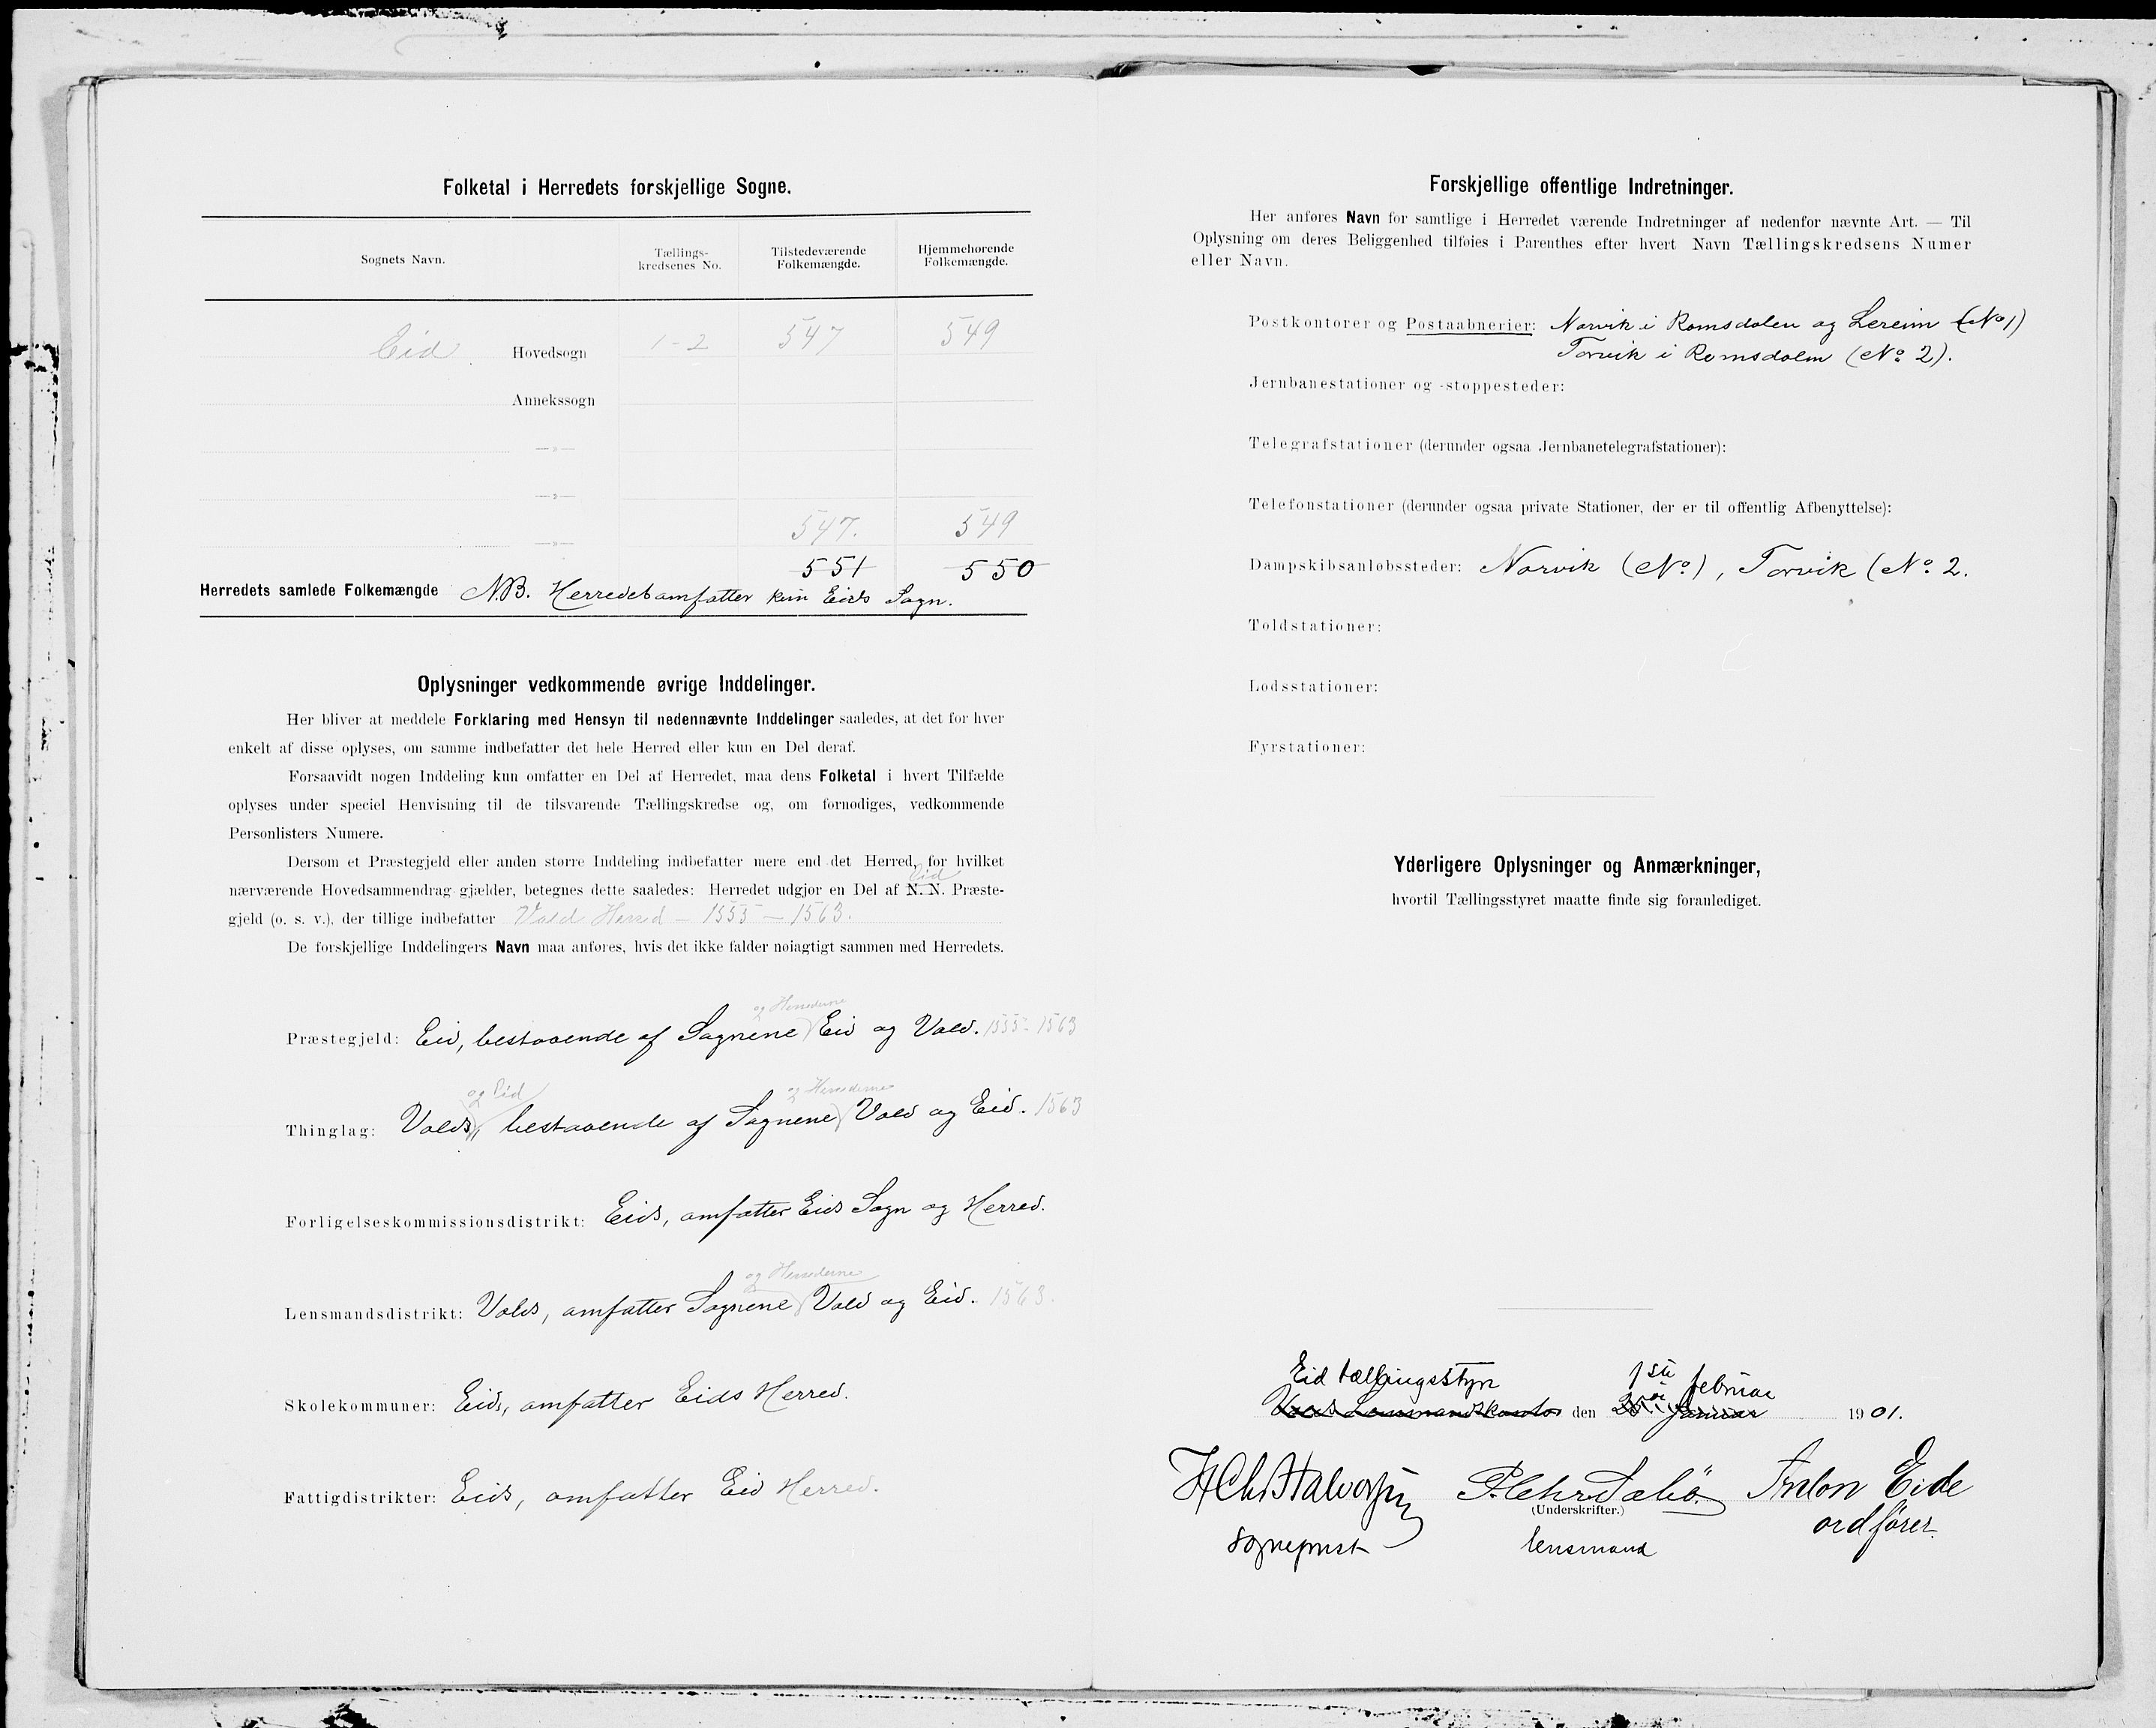 Folketal i Herredets forskjellige Sogne.
Sognets Navn. Tællings-kredsenes No. Tilstedeværende Folkemængde. Hjemmehørende Folkemængde.
Eid Hovedsogn 1-2 547 549
Annekssogn
—»—
—»—
547. 549
—»—
551 550
Herredets samlede Folkemængde N.B. Herredet omfatter kun Eids Sogn.
Oplysninger vedkommende øvrige Inddelinger.
Her bliver at meddele Forklaring med Hensyn til nedennævnte Inddelinger saaledes, at det for hver
enkelt af disse oplyses, om samme indbefatter det hele Herred eller kun en Del deraf.
Forsaavidt nogen Inddeling kun omfatter en Del af Herredet, maa dens Folketal i hvert Tilfælde
oplyses under speciel Henvisning til de tilsvarende Tællingskredse og, om fornødiges, vedkommende
Personlisters Numere.
Dersom et Præstegjeld eller anden større Inddeling indbefatter mere end det Herred, for hvilket
Eid
nærværende Hovedsammendrag gjælder, betegnes dette saaledes: Herredet udgjør en Del af N. N. Præste-
gjeld (o. s. v.), der tillige indbefatter Vold Herred — 1555 — 1563.
De forskjellige Inddelingers Navn maa anføres, hvis det ikke falder nøiagtigt sammen med Herredets.
og Herrederne
Præstegjeld: Eid, bestaaende af Sognene Eid og Vold. 1555 - 1563
og Eid og Herrederne
Thinglag: Volds, bestaaende af Sognene Vold og Eid. 1563
Forligelseskommissionsdistrikt: Eids, omfatter Eids Sogn og Herred.
og Herrederne
Lensmandsdistrikt: Volds, omfatter Sognene Vold og Eid. 1563.
Skolekommuner: Eids, omfatter Eids Herred.
Fattigdistrikter: Eids, omfatter Eid Herred.
Forskjellige offentlige Indretninger.
Her anføres Navn for samtlige i Herredet værende Indretninger af nedenfor nævnte Art. — Til
Oplysning om deres Beliggenhed tilføies i Parenthes efter hvert Navn Tællingskredsens Numer
eller Navn.
Postkontorer og Postaabnerier: Norvik i Romsdalen og Lereim (No 1)
Torvik i Romsdalen (No 2).
Jernbanestationer og -stoppesteder:
Telegrafstationer (derunder ogsaa Jernbanetelegrafstationer):
Telefonstationer (derunder ogsaa private Stationer, der er til offentlig Afbenyttelse):
Dampskibsanløbssteder: Norvik (No), Torvik (No 2.
Toldstationer:
Lodsstationer:
Fyrstationer:
Yderligere Oplysninger og Anmærkninger,
hvortil Tællingsstyret maatte finde sig foranlediget.
Eid tællingsstyr 1ste februar
Lensmandskontor den Januar 1901.
H Chr Halvorsen Anton Eide
(Underskrifter.)
sogneprest lensmand ordfører.